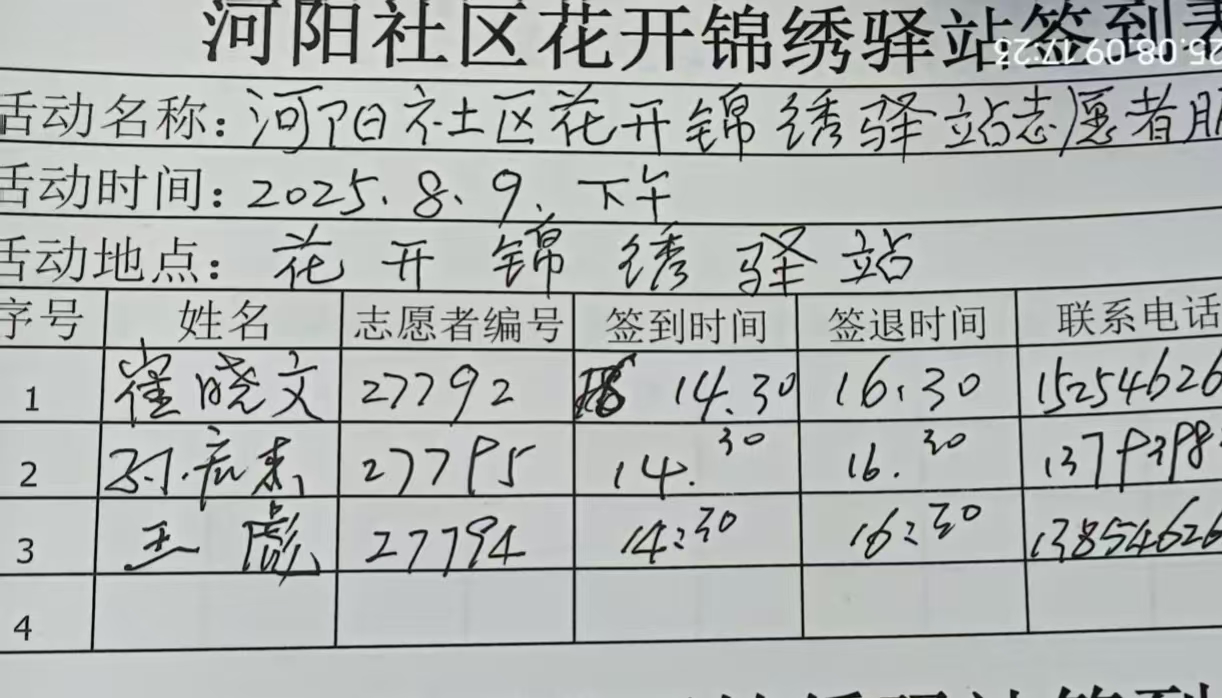 河阳社区花开锦绣驿站签到表
25.08.09 17:23
活动名称：河阳社区花开锦绣驿站志愿者服
活动时间：2025.8.9.下午
活动地点：花开锦绣驿站
序号 姓名 志愿者编号 签到时间 签退时间 联系电话
1 崔晓文 27792 14.30 16.30 15254626
2 27795 14.30 16.30 1379398
3 王彪 27794 14:30 16:30 13854626
4